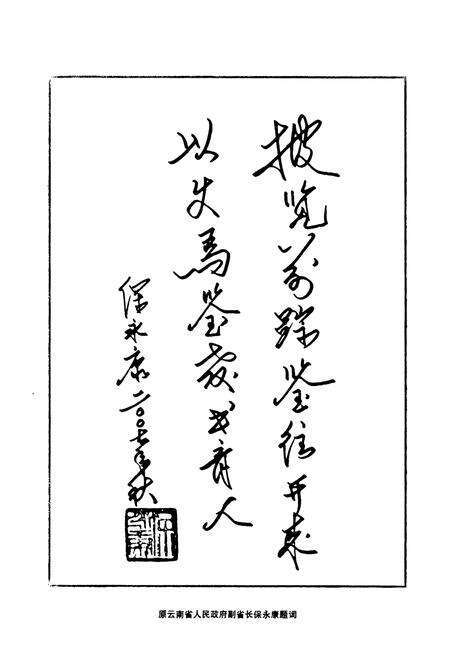 披览前踪鉴往开来
以史为鉴教书育人
保永康二〇〇七年秋
原云南省人民政府副省长保永康题词